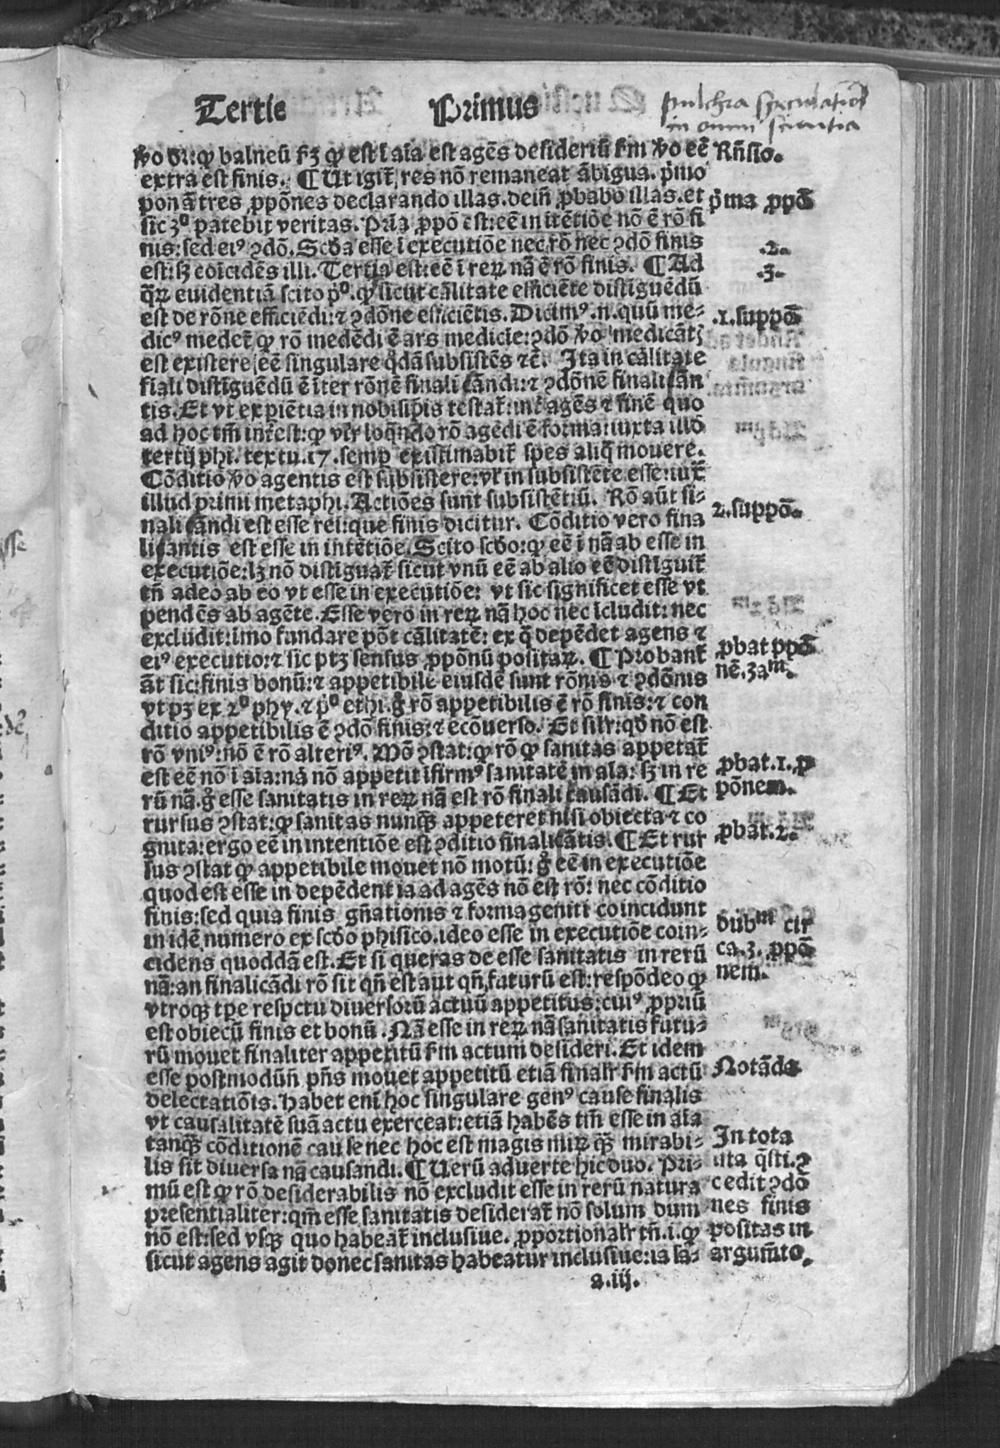 Tertie Primus
pulchra speculatio
in omni scientia
ṽo dr̄: ꝙ balneū ẜm ꝙ est ī aīa est agēs desideriū ẜm ṽo eē
extra est finis. ¶ Ut igit̄ res nō remaneat ābigua. p̄mo
ponā tres ꝓpōnes declarando illas. dein̄ ꝓbabo illas. et
sic 3º patebit veritas. Prīa ꝓpō est: eē in itētiōe nō ē rō fi
nis: sed eiꝰ ꝯdō. Scd̄a esse ī executiōe nec rō nec ꝯdō finis
est: sꝫ coīcidēs illi. Tertia est: eē ī reꝝ nā ē rō finis. ¶ Ad
q̄ꝝ euidentiā scito pº. ꝙ sicut cālitate efficiēte distiguēdū
est de rōne efficiēdi: ⁊ ꝯdōne efficiētis. Dicimꝰ .n. quū me-
dicꝰ medet̄ ꝙ rō medēdi ē ars medicie: ꝯdō ṽo medicātꝭ
est existere seē singulare q̄dā subsistēs ⁊c̄. Ita in cālitate
fiali distiguēdū ē iter rōnē finali cāndi: ⁊ ꝯdōnē finali cān
tis. Et vt expiētia in nobisip̄is testat̄: int̄ agēs ⁊ finē quo
ad hoc tm̄ int̄est: ꝙ vl̄r loq̄ndo rō agēdi ē forma: iuxta illd̄
tertij phi. textu. 17. semꝑ existimabit̄ spēs aliq̄ mouere.
Cōditio ṽo agentis est subsistere: vl̄ in subsistēte esse: iux̄
illud primi metaphi. Actiōes sunt subsistētiū. Rō aūt fi-
nali cāndi est esse rei: que finis dicitur. Cōditio vero fina
licantis est esse in intētiōe. Scito scd̄o: ꝙ eē ī nā ab esse in
executiōe: lꝫ nō distiguat̄ sicut vnū eē ab alio eē distiguit̄
tn̄ adeo ab eo vt esse in executiōe: vt sic significet esse vt
pendēs ab agēte. Esse vero in reꝝ nā hoc nec īcludit: nec
excludit: imo fundare pōt cālitatē: ex q̄ depēdet agens ⁊
eiꝰ executio: ⁊ sic ptꝫ sensus ꝓpōnū positaꝝ. ¶ Probant̄
āt sic: finis bonū: ⁊ appetibile eiusdē sunt rōnis ⁊ ꝯdōnis
vt pꝫ ex 2º phy. ⁊ pº ethi. g̊ rō appetibilis ē rō finis: ⁊ con
ditio appetibilis ē ꝯdō finis: ⁊ ecōuerso. Et sil̄r: qd̄ nō est
rō vniꝰ: nō ē rō alteriꝰ. Mō ꝯstat: ꝙ rō ꝙ sanitas appetat̄
est eē nō ī aīa: nā nō appetit ifirmꝰ sanitatē in aīa: sꝫ in re
rū nā. g̊ esse sanitatis in reꝝ nā est rō finali causādi. ¶ Et
rursus ꝯstat: ꝙ sanitas nunqꝫ appeteret̄ nisi obiecta ⁊ co
gnita: ergo eē in intentiōe est ꝯditio finalicātis. ¶ Et rur
sus ꝯstat ꝙ appetibile mouet nō motū: g̊ eē in executiōe
quod est esse in depēdentia ad agēs nō est rō: nec cōditio
finis: sed quia finis gn̄ationis ⁊ forma geniti coincidunt
in idē numero ex scd̄o phisico. ideo esse in executiōe coin-
cidens quoddā est. Et si queras de esse sanitatis in rerū
nā: an finalicādi rō sit qn̄ est aut qn̄ futurū est: respōdeo ꝙ
vtroqꝫ tp̄e respctu diuersorū actuū appetitus: cuiꝰ ꝓpriū
est obiectū finis et bonū. Nā esse in reꝝ nā sanitatis futu-
rū mouet finaliter appetitū ẜm actum desideri. Et idem
esse postmodū pn̄s mouet appetitū etiā finalr̄ ẜm actū
delectatiōis. Habet eni hoc singulare genꝰ cause finalis
vt causalitatē suā actu exerceat: etiā habēs tm̄ esse in aīa
tanqꝫ cōditionē cause nec hoc est magis miꝝ qꝫ mirabi-
lis sit diuersa nā causandi. ¶ Uerū aduerte hic duo. Pri-
mū est ꝙ rō desiderabilis nō excludit esse in rerū natura
presentialiter: qm̄ esse sanitatis desiderat̄ nō solum dum
nō est: sed vsqꝫ quo habeat̄ inclusiue. ꝓportionalr̄ tn̄. i. ꝙ
sicut agens agit donec sanitas habeatur inclusiue: ia sa-
a.iij.
Rn̄sio.
p̄ma ꝓpō
.2.
.3.
.1. suppō
2. suppō.
ꝓbat ꝓpō
nē. 3aᵐ.
ꝓbat. 1. ꝓ
pōnem.
ꝓbat. 2.
dubᵐ cir
ca. 3. ꝓpō
nem.
Notāda
In tota
ista q̄sti. ꝯ
cedit ꝯdō
nes finis
positas in
argum̄to.